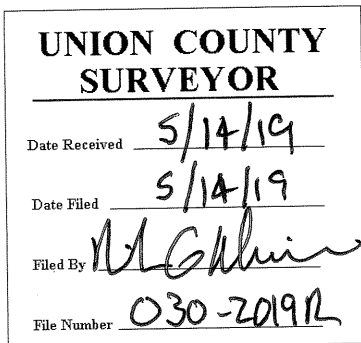 UNION COUNTY
SURVEYOR
Date Received 5/14/19
Date Filed 5/14/19
Filed By
File Number 030-2019R